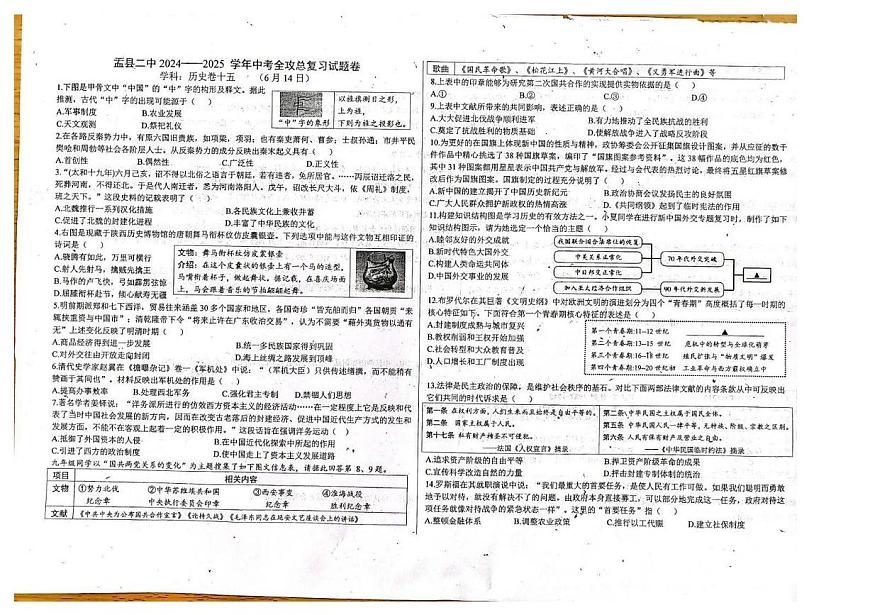 盂县二中 2024——2025 学年中考全攻总复习试题卷
学科：历史卷十五 （6 月 14 日）
1.下图是甲骨文中“中国”的“中”字的构形及释文。据此
推测，古代“中”字的出现可能源于（ ）
A.军事制度 B.农业发展
C.天文观测 D.祭祀礼仪
“中”字的象形
以旌旗测日之形，
上为旌，
下则为旌之投影也。
2.在各路反秦势力中，有原六国旧贵族，如项梁，项羽；也有秦吏萧何、曹参；士叔孙通；市井平民
樊哙和周勃等社会各阶层人士。从反秦势力的成分反映出秦末起义具有（ ）
A.首创性 B.偶然性 C.广泛性 D.正义性
3.“(太和十九年)六月己亥，诏不得以北俗之语言于朝廷，若有违者，免所居官。……丙辰诏迁洛之民，
死葬河南，不得还北。于是代人南迁者，悉为河南洛阳人。戊午，诏改长尺大斗，依《周礼》制度，
班之天下。”这段史料的记载表明了（ ）
A.北魏推行一系列汉化措施 B.各民族文化上兼收并蓄
C.促进了北魏的封建化进程 D.丰富了中华民族的文化
4.右图是现藏于陕西历史博物馆的唐朝舞马衔杯纹仿皮囊银壶。下列选项中能与这件文物互相印证的
诗词是（ ）
A.骁腾有如此，万里可横行
C.射人先射马，擒贼先擒王
B.马作的卢飞快，弓如霹雳弦惊
D.屈膝衔杯赴节，倾心献寿无疆
文物：舞马衔杯纹仿皮囊银壶
介绍：在这个皮囊状的银壶上有一个马的造型，
马嘴衔着杯子，做起舞姿。据记载，在喜庆场面
上，马会跟着音乐的节拍翩翩起舞。
5.明前期郑和七下西洋，贸易往来涵盖 30 多个国家和地区，各国奇珍“皆充舶而归”各国朝贡“来
辄挟重资与中国市”；清乾隆帝下令“将来止许在广东收泊交易”，认为不需要“藉外夷货物以通有
无”上述变化反映了明清时期（ ）
A.商品经济得到进一步发展 B.统一多民族国家得到巩固
C.对外交往由开放走向封闭 D.海上丝绸之路发展到顶峰
6.清代史学家赵翼在《檐曝杂记》卷一《军机处》中说：“（军机大臣）只供传述缮撰，而不能稍有
赞画于其间也”。材料反映出军机处的作用是（ ）
A.提高办事效率 B.处理西北军务 C.强化君主专制 D.禁锢人们思想
7.著名学者姜铎说：“洋务派所进行的仿效西方资本主义的经济活动……在一定程度上它是反映和代
表了当时中国社会发展的新方向，因而在改变古老落后的封建经济、促进中国近代生产方式的发生和
发展方面，不能不在客观上起着一定的积极作用。”这段话旨在强调洋务运动（ ）
A.抵御了外国资本的入侵 B.在中国近代化探索中所起的作用
C.引进了西方的政治制度 D.使中国走上了资本主义发展道路
九年级同学以“国共两党关系的变化”为主题搜集了如下图文信息表，请据此回答第 8、9 题。
项目 相关内容
文物 ①努力北伐 ②中华苏维埃共和国 ③西安事变 ④淮海战役
纪念章 中央执行委员会印章 纪念章 胜利纪念章
文献 《中共中央为公布国共合作宣言》《论持久战》《毛泽东同志在延安文艺座谈会上的讲话》
歌曲 《国民革命歌》、《松花江上》、《黄河大合唱》、《义勇军进行曲》等
8.上表中的印章能够为研究第二次国共合作的实现提供实物依据的是（ ）
A.① B.② C.③ D.④
9.上表中文献所带来的共同影响，表述正确的是（ ）
A.大大促进北伐战争顺利进军 B.有力地推动了全民族抗战的胜利
C.奠定了抗战胜利的物质基础 D.使解放战争进入了战略反攻阶段
10.为更好的在国旗上体现新中国的性质与精神，政协筹委会公开征集国旗设计图案，并从应征的数千
件作品中精心挑选了 38 种国旗草案，编印了“国旗图案参考资料”。这 38 幅作品的底色均为红色，
其中 31 种图案都用星星表示中国共产党与解放军。经过与会代表的热烈讨论，最终将五星红旗草案修
改后作为国旗图案。国旗制定的过程充分说明了（ ）
A.新中国的建立揭开了中国历史新纪元 B.政治协商会议发扬民主的良好氛围
C.广大人民群众拥护新政权的热情高涨 D.《共同纲领》起到了临时宪法的作用
11.构建知识结构图是学习历史的有效方法之一。小夏同学在进行新中国外交专题复习时，制作了如下
知识结构图示，请为她选定一个恰当的主题（ ）
A.睦邻友好的外交成就
B.新时代特色大国外交
C.构建人类命运共同体
D.中国外交事业的发展
我国联合国合法席位的恢复
中美关系正常化
中日邦交正常化
加入亚太经济合作组织
70 年代外交突破
90 年代外交新发展
▲
12.布罗代尔在其巨著《文明史纲》中对欧洲文明的演进划分为四个“青春期”高度概括了每一时期的
核心特征如下。下面符合第一个青春期核心特征的表述是（ ）
A.封建制度成熟与城市复兴
B.教权削弱和王权开始加强
C.社会转型和大众教育普及
D.人口增长和工厂制度出现
第一个青春期:11-12 世纪 ▲
第二个青春期:13-15 世纪 危机中的转型与全球化萌芽
第三个青春期:16-18 世纪 殖民扩张与“物质文明”爆发
第四个青春期:19-20 世纪初 工业革命与西方霸权确立中
13.法律是民主政治的保障，是维护社会秩序的基石。对比下面两部法律文献的内容条款从中可反映出
它们共同的时代诉求是（ ）
第一条 在权利方面，人们生来而且始终是自由平等的。
第三条 国家主权属于人民。
第十七条 私有财产神圣不可侵犯。
——法国《人权宣言》摘录
第二条 中华民国之主权属于国民全体。
第五条 中华民国人民一律平等，无种族、阶级、宗教之区别。
第六条 人民有保有财产及营业之自由。
——《中华民国临时约法》摘录
A.追求资产阶级的自由平等 B.捍卫资产阶级革命的成果
C.宣传科学改造自然的力量 D.抨击封建专制体制的统治
14.罗斯福在其就职演说中说：“我们最重大的首要任务，是使人民有工作可做。如果我们聪明而勇敢
地予以对待，就没有解决不了的问题。由政府本身直接募工，可以部分地完成这一任务，政府对待这
项任务就像对待战争的紧急状态一样”。这里的“首要任务”指（ ）
A.整顿金融体系 B.调整农业政策 C.推行以工代赈 D.建立社保制度